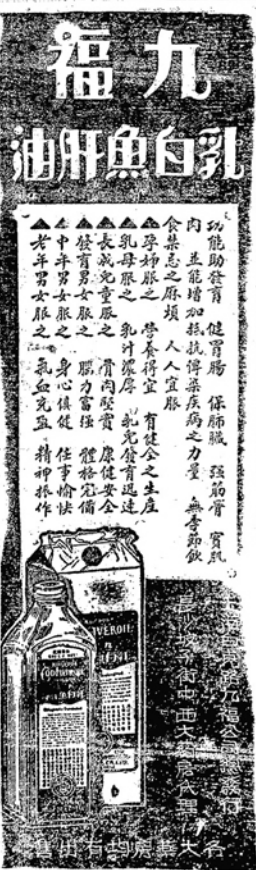 九福
乳白魚肝油
功能助發育　健胃腸　保肺臟　強筋骨　實肌
肉　並能增加抵抗傳染疾病之力量　無季節飲
食禁忌之麻煩　人人宜服
▲孕婦服之　營養得宜　有健全之生產
▲乳母服之　乳汁濃厚　乳兒發育迅速
▲長成兒童服之　骨肉堅實　康健安全
▲發育男女服之　腦力富強　體格完備
▲中年男女服之　身心俱健　任事愉快
▲老年男女服之　氣血充盈　精神振作
九福公司
長沙坡子街中西大藥房代理
各大藥房均有出售